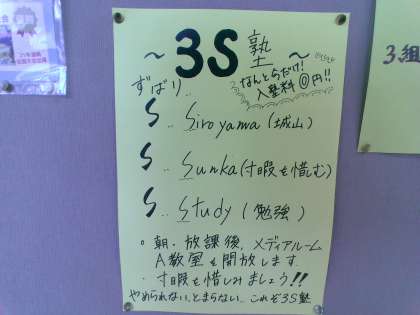 ～3S塾～
なんとらだけ！
入塾料0円!!
ずばり..
S.. Siroyama(城山)
S.. Sunka(寸暇を惜しむ)
S.. Study(勉強)
。朝・放課後、メディアルーム
A教室を開放します
・寸暇を惜しみましょう!!
やめられない、とまらない、これぞ3S塾
3.組